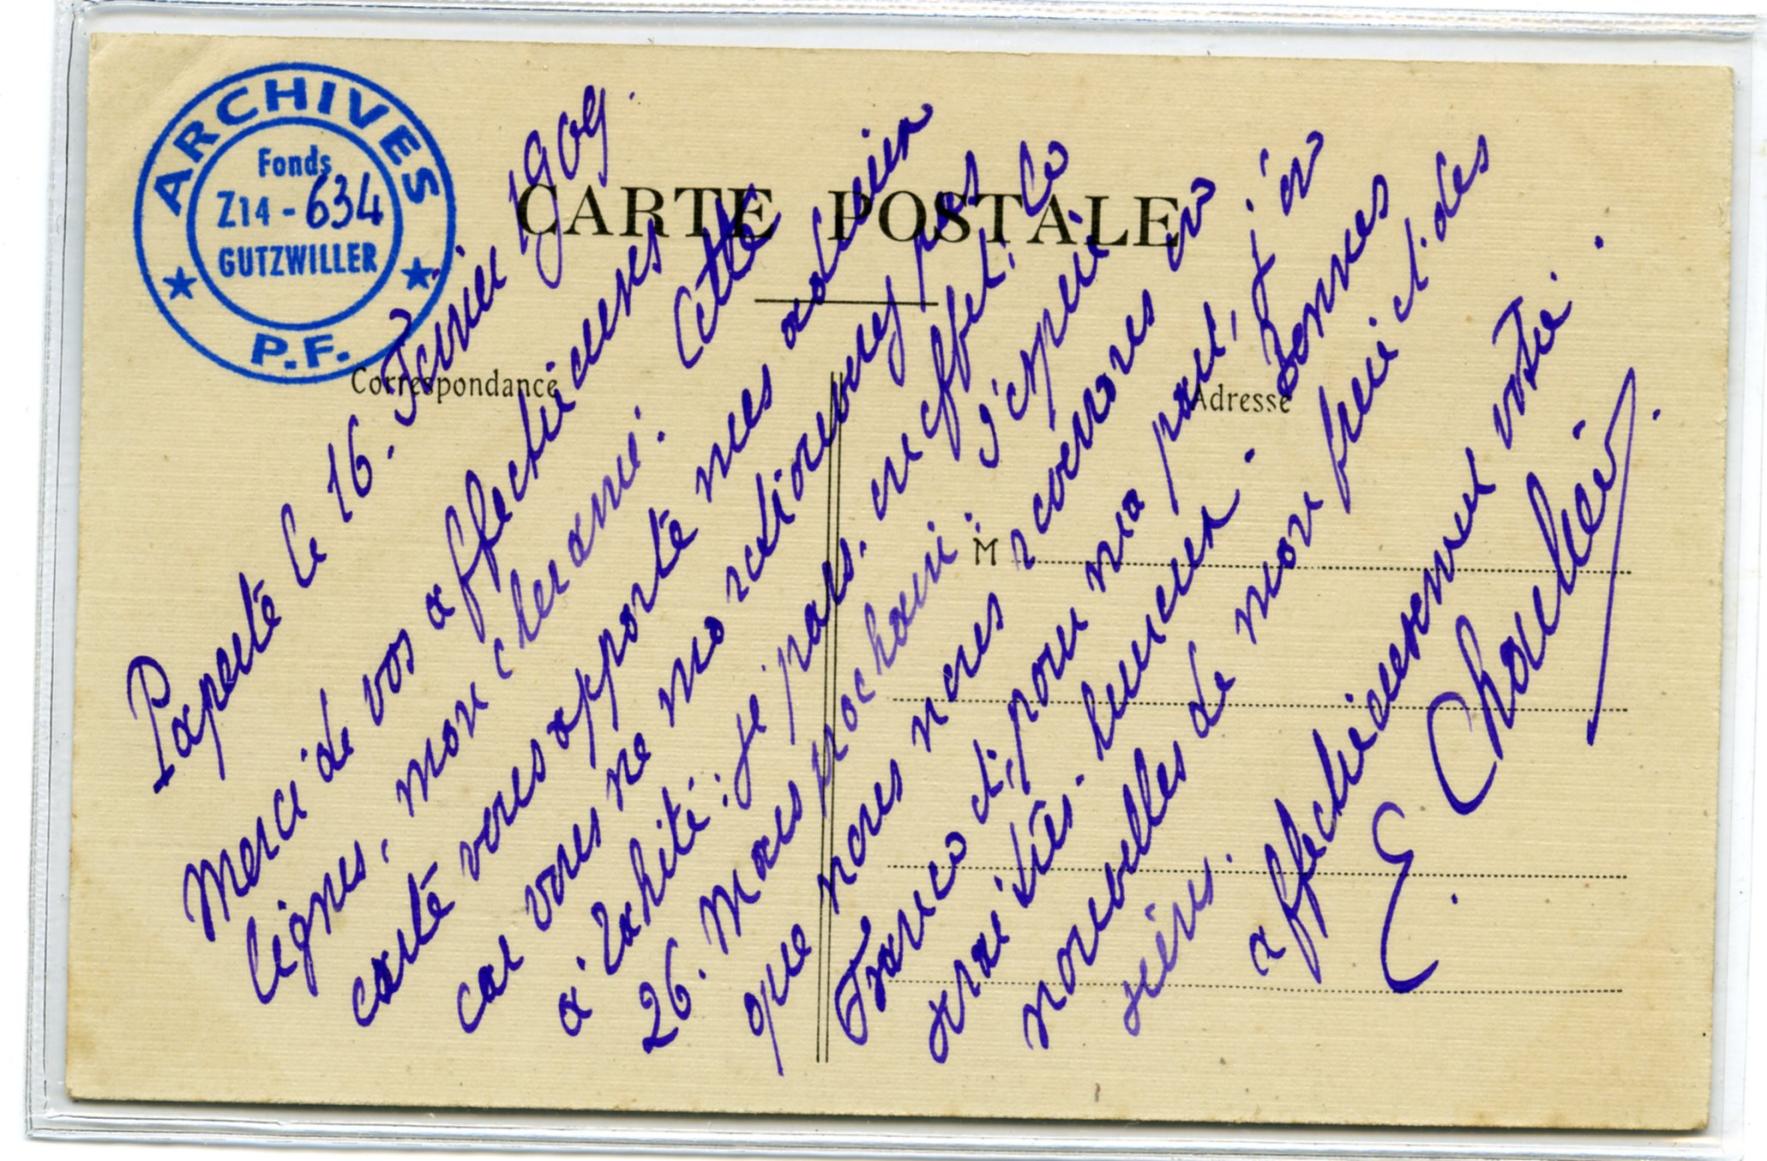 ARCHIVES
Fonds
Z14 - 634
GUTZWILLER
P.F.
CARTE POSTALE
Correspondance
Adresse
M
Papeete le 16. Février 1909.
Merci de vos affectueuses
lignes, mon cher ami. Cette
carte vous apporte mes adieux
car vous ne me retrouverez pas
à Tahiti: je pars, en effet, le
26. Mars prochain. J'espère
que nous nous reverrons en
France et, pour ma part, j'en
serai très heureux. Donnez
nouvelles de mon frère et des
siens.
affectueusement votre.
E.